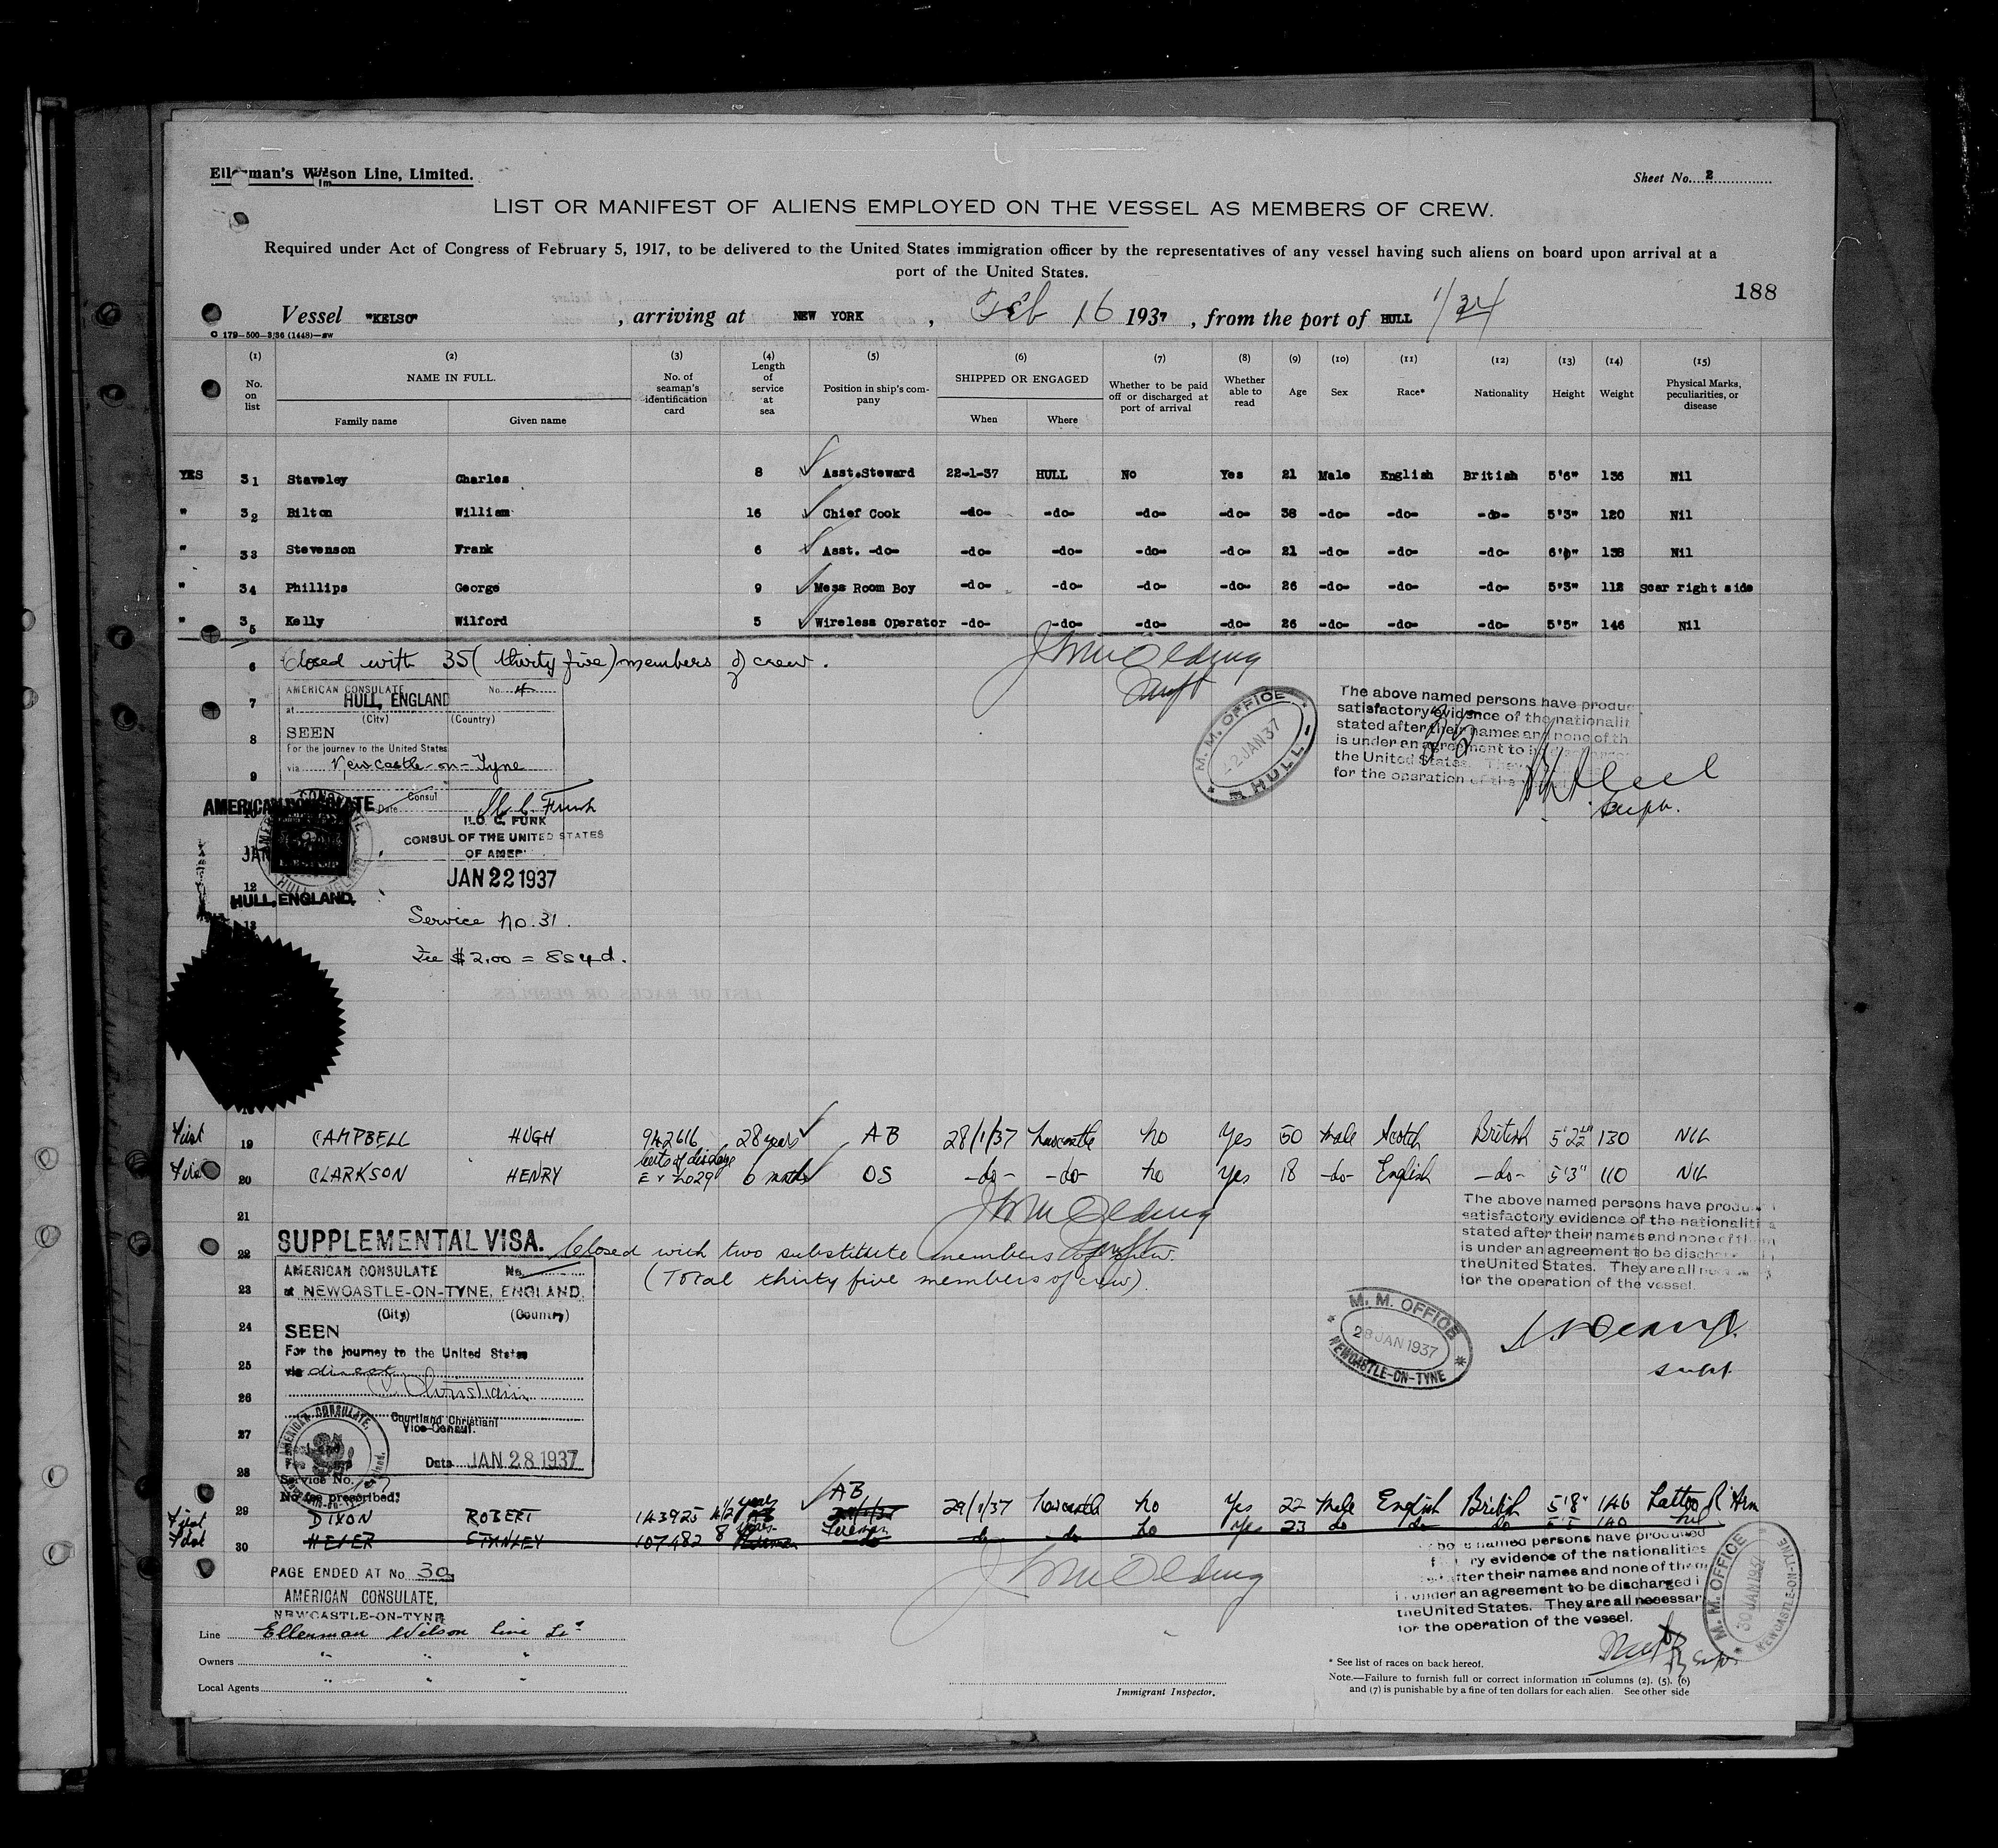 Ellerman's Wilson Line, Limited.
Sheet No. 2
LIST OR MANIFEST OF ALIENS EMPLOYED ON THE VESSEL AS MEMBERS OF CREW.
Required under Act of Congress of February 5, 1917, to be delivered to the United States immigration officer by the representatives of any vessel having such aliens on board upon arrival at a
port of the United States.
188
Vessel "KELSO", arriving at NEW YORK, Feb 16 1937, from the port of HULL 1/34
C 179—500—3/36 (1448)—SW
(1) (2) (3) (4) (5) (6) (7) (8) (9) (10) (11) (12) (13) (14) (15)
No. on list NAME IN FULL. No. of seaman's identification card Length of service at sea Position in ship's company SHIPPED OR ENGAGED Whether to be paid off or discharged at port of arrival Whether able to read Age Sex Race* Nationality Height Weight Physical Marks, peculiarities, or disease
Family name Given name When Where
YES 31 Staveley Charles 8 Asst.Steward 22-1-37 HULL No Yes 21 Male English British 5'6" 136 Nil
" 32 Bilton William 16 Chief Cook -do- -do- -do- -do- 38 -do- -do- -do- 5'3" 120 Nil
" 33 Stevenson Frank 6 Asst. -do- -do- -do- -do- -do- 21 -do- -do- -do- 6'0" 138 Nil
" 34 Phillips George 9 Mess Room Boy -do- -do- -do- -do- 26 -do- -do- -do- 5'3" 112 Scar right side
" 35 Kelly Wilford 5 Wireless Operator -do- -do- -do- -do- 26 -do- -do- -do- 5'5" 146 Nil
6 Closed with 35 (thirty five) members of crew.
AMERICAN CONSULATE No. 4
7 at HULL, ENGLAND
(City) (Country)
8 SEEN
For the journey to the United States
9 via Newcastle-on-Tyne
The above named persons have produc
satisfactory evidence of the nationalit
stated after their names and none of th
is under an agreement to be discharge
the United States. They
for the operation of the
35
Supt.
M. M. OFFICE
22 JAN 37
HULL
AMERICAN CONSULATE
Date Consul
ILO C. FUNK
CONSUL OF THE UNITED STATES
OF AMER
JAN 22 1937
12
HULL, ENGLAND.
13
Service No. 31.
Fee $2.00 = 8s 4d.
First 19 CAMPBELL HUGH 942616 28 years AB 28/1/37 Newcastle No Yes 50 Male Scotch British 5'2½" 130 NIL
First 20 CLARKSON HENRY 6 months OS -do- -do- No Yes 18 -do- English -do- 5'3" 110 NIL
21
22 SUPPLEMENTAL VISA. Closed with two substitute members of crew.
(Total thirty five members of crew)
AMERICAN CONSULATE No.
23 at NEWCASTLE-ON-TYNE, ENGLAND
(City) (Country)
24 SEEN
For the journey to the United States
25 via direct
26
Courtland Christiani
27 Vice-Consul.
28 Date JAN 28 1937
AMERICAN CONSULATE,
Service No.
No fee prescribed.
The above named persons have produ
satisfactory evidence of the nationaliti
stated after their names and none of them
is under an agreement to be discha
the United States. They are all
for the operation of the vessel.
M. M. OFFICE
28 JAN 1937
NEWCASTLE-ON-TYNE
supt.
First 29 DIXON ROBERT 143925 4½ years AB 29/1/37 Newcastle No Yes 22 Male English British 5'8" 146 Tattoo R Arm
First 30 STANLEY 107482 8 years Fireman do do No Yes 23 do do do 5'5 140 nil
PAGE ENDED AT No. 30
AMERICAN CONSULATE,
NEWCASTLE-ON-TYNE
bove named persons have produced
ry evidence of the nationalities
after their names and none of them
under an agreement to be discharged i
the United States. They are all necessar
for the operation of the vessel.
M. M. OFFICE
30 JAN 1937
NEWCASTLE-ON-TYNE
Line Ellerman Wilson Line Ld
Owners " " "
Local Agents " " "
Immigrant Inspector.
* See list of races on back hereof.
Note.—Failure to furnish full or correct information in columns (2), (5), (6)
and (7) is punishable by a fine of ten dollars for each alien. See other side